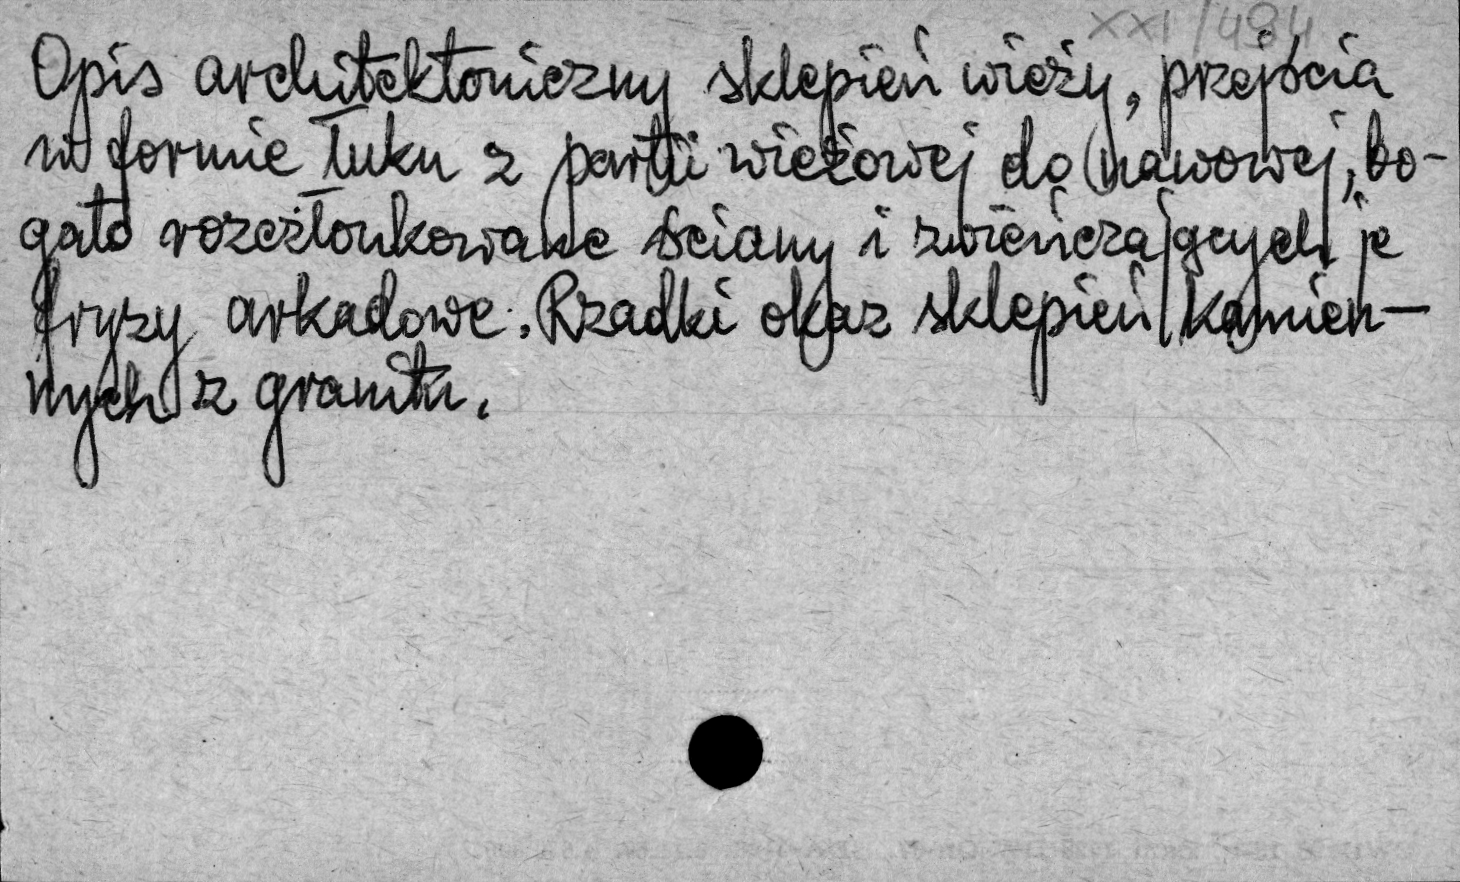 XXI/484
Opis architektoniczny sklepień wieży, przejścia
w formie łuku z partii wieżowej do nawowej, bo-
gato rozczłonkowane ściany i zwieńczających je
fryzy arkadowe. Rzadki okaz sklepień kamien-
nych z granitu.